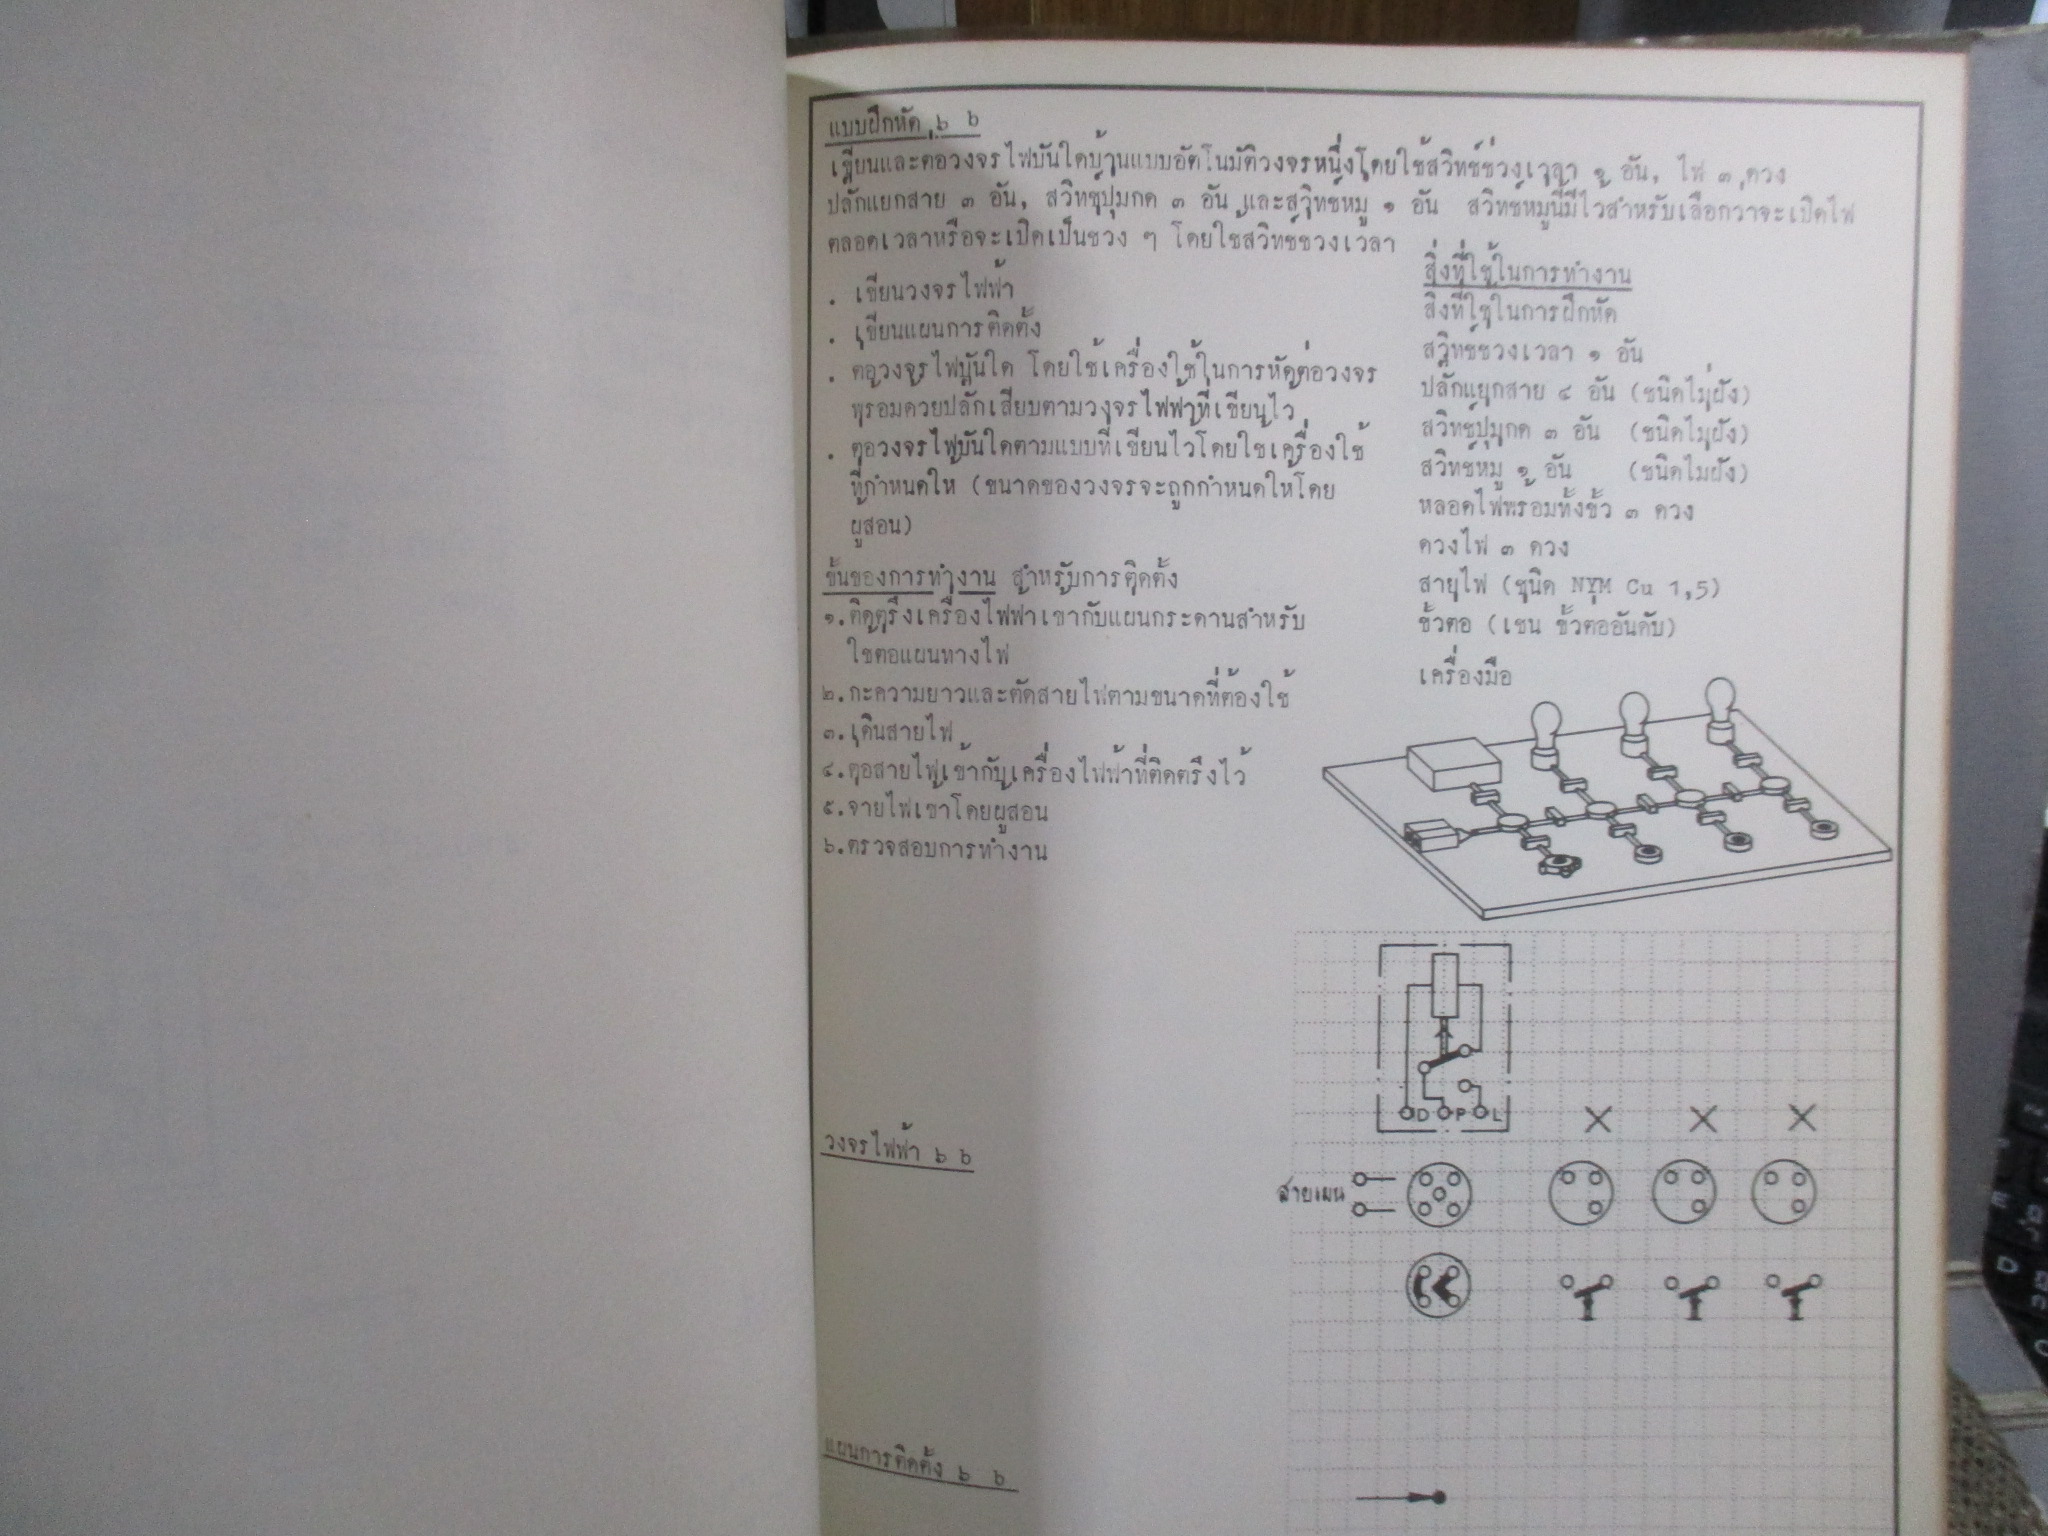 แบบฝึกหัด ๖ ๖
เขียนและต่อวงจรไฟบันใดบ้านแบบอัตโนมัติวงจรหนึ่งโดยใช้สวิทช์ช่วงเวลา ๑ อัน, ไฟ ๓ ดวง
ปลั๊กแยกสาย ๓ อัน, สวิทช์ปุ่มกด ๓ อัน และสวิทช์หมู่ ๑ อัน สวิทช์หมู่นี้มีไว้สำหรับเลือกว่าจะเปิดไฟ
ตลอดเวลาหรือจะเปิดเป็นช่วง ๆ โดยใช้สวิทช์ช่วงเวลา
. เขียนวงจรไฟฟ้า
. เขียนแผนการติดตั้ง
. ต่อวงจรไฟบันใด โดยใช้เครื่องใช้ในการหัดต่อวงจร
พร้อมด้วยปลั๊กเสียบตามวงจรไฟฟ้าที่เขียนไว้
. ต่อวงจรไฟบันใดตามแบบที่เขียนไว้โดยใช้เครื่องใช้
ที่กำหนดให้ (ขนาดของวงจรจะถูกกำหนดให้โดย
ผู้สอน)
ขั้นของการทำงาน สำหรับการติดตั้ง
๑.ติดตรึงเครื่องไฟฟ้าเข้ากับแผนกระดานสำหรับ
ใช้ต่อแผนทางไฟ
๒.กะความยาวและตัดสายไฟตามขนาดที่ต้องใช้
๓.เดินสายไฟ
๔.ต่อสายไฟเข้ากับเครื่องไฟฟ้าที่ติดตรึงไว้
๕.จ่ายไฟเข้าโดยผู้สอน
๖.ตรวจสอบการทำงาน
สิ่งที่ใช้ในการทำงาน
สิ่งที่ใช้ในการฝึกหัด
สวิทช์ช่วงเวลา ๑ อัน
ปลั๊กแยกสาย ๔ อัน (ชนิดไม่ฝัง)
สวิทช์ปุ่มกด ๓ อัน (ชนิดไม่ฝัง)
สวิทช์หมู่ ๑ อัน (ชนิดไม่ฝัง)
หลอดไฟพร้อมทั้งขั้ว ๓ ดวง
ดวงไฟ ๓ ดวง
สายไฟ (ชนิด NYM Cu 1,5)
ขั้วต่อ (เช่น ขั้วต่ออันดับ)
เครื่องมือ
D P L
วงจรไฟฟ้า ๖ ๖
สายเมน
แผนการติดตั้ง ๖ ๖